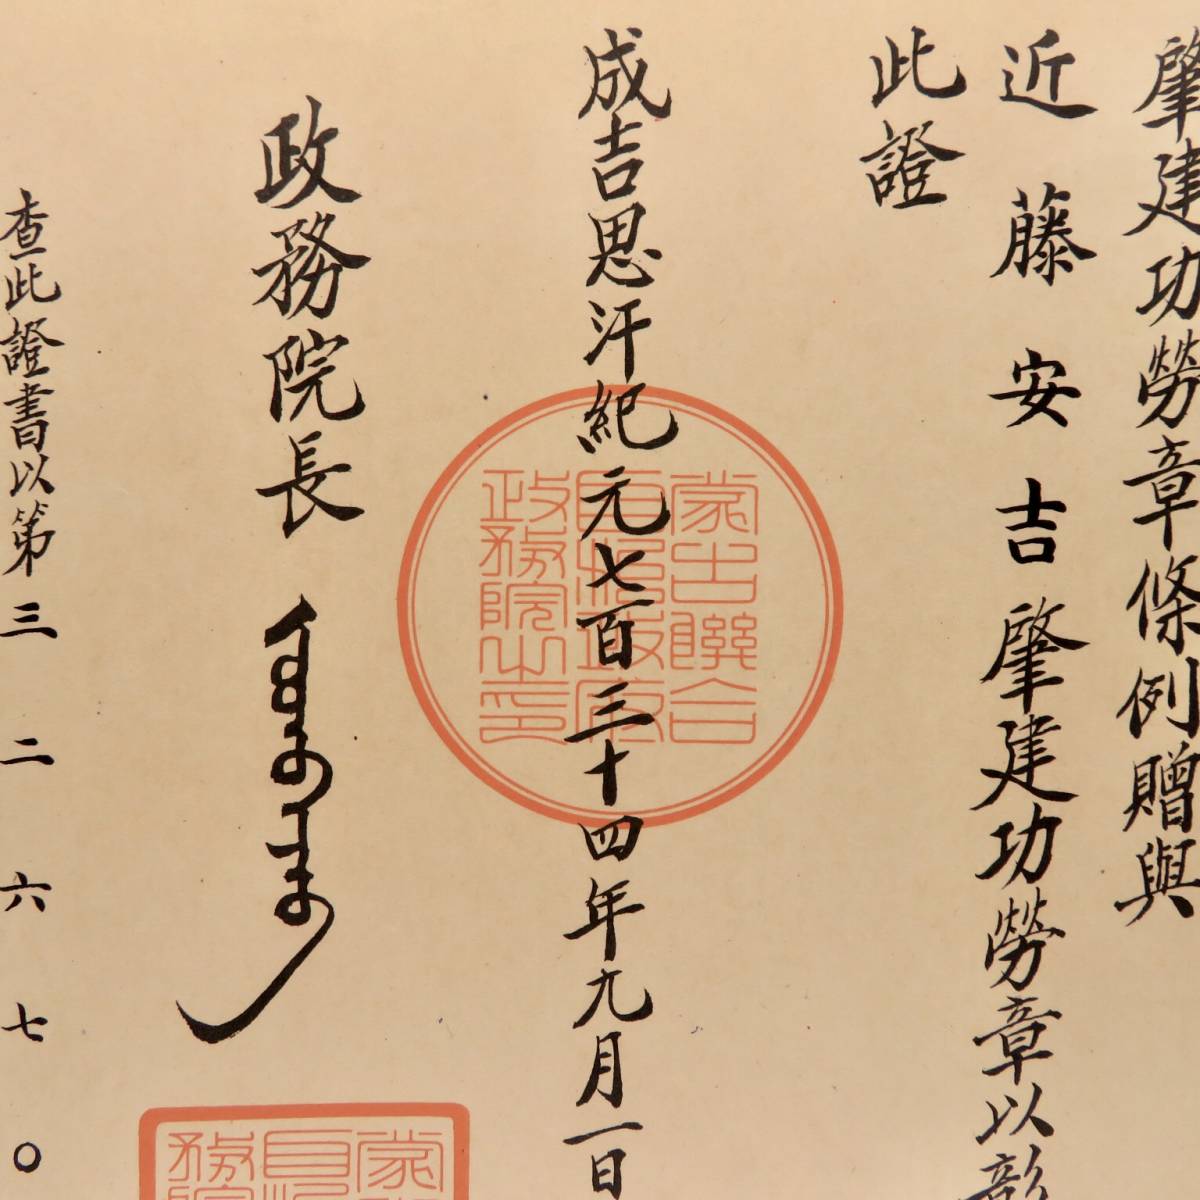 肇建功勞章條例贈與
近藤安吉肇建功勞章以彰
此證
成吉思汗紀元七百三十四年九月一日
蒙古聯合
自治政府
政務院之印
政務院長
查此證書以第三二六七〇